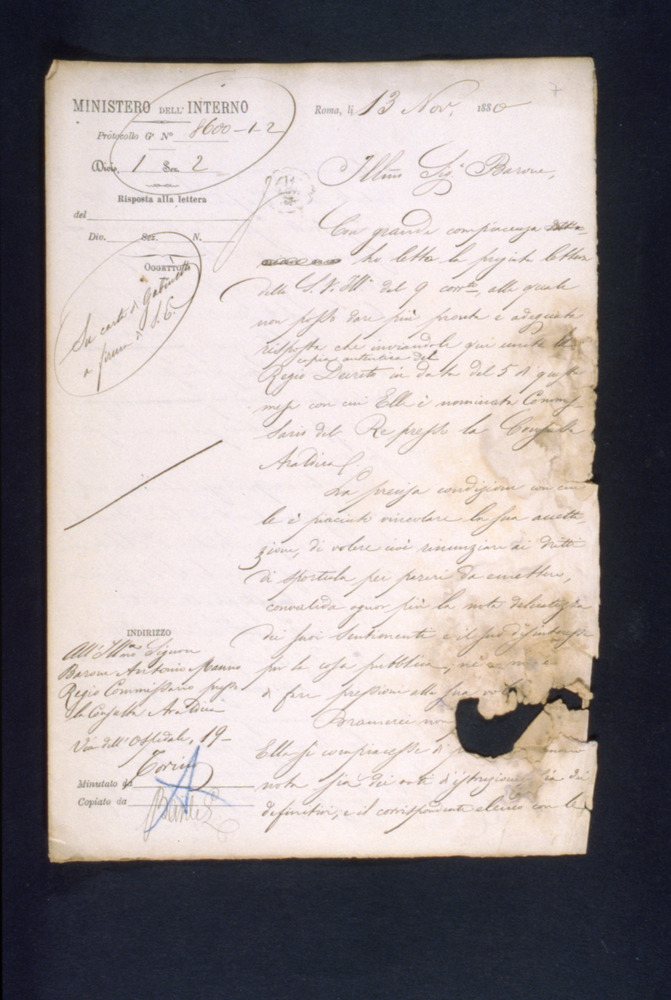 MINISTERO DELL' INTERNO
Protocollo G.e N.o 8600-1-2
Divis. 1 Sez. 2
Risposta alla lettera
del
Div. Sez. N.
OGGETTO
Su carta di Gabinetto
a firma di S. E.
INDIRIZZO
All'Ill.mo Signor
Barone Antonio Manno
Regio Commissario presso
la Consulta Araldica
Via dell'Ospedale, 19-
Torino
Minutato da
Copiato da
7
Roma, li 13 Nov. 1880
Illmo Sig. Barone,
Con grande compiacenza
ho letto la pregiata lettera
della S. V. Ill.a del 9 corr.te, alla quale
non posso dare più pronta e adeguata
risposta che inviandole qui unita la
copia autentica del
Regio Decreto in data del 5 di questo
mese con cui Ella è nominata Commis-
sario del Re presso la Consulta
Araldica.
La precisa condizione con cui
le è piaciuto vincolare la sua accetta-
zione, di volere cioè rinunziare ai dritti
di sportula pei pareri da emettere,
convalida ognor più la nota delicatezza
dei suoi sentimenti e il suo disinteresse
per la cosa pubblica, nè
di fare pressioni alla sua
Bramerei
Ella si compiacesse di
nota sia dei voti d'istruzione sia dei
definitivi, e il corrispondente elenco con la